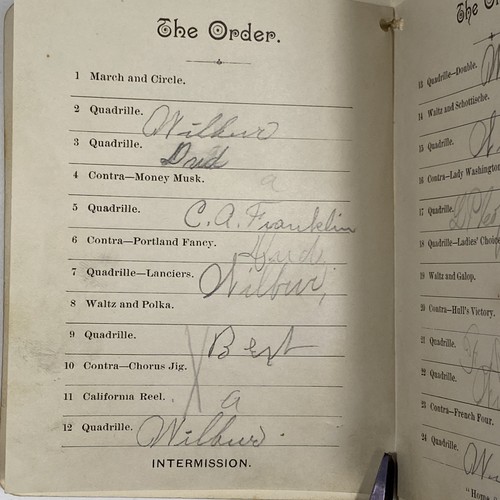 The Order.
1 March and Circle.
2 Quadrille. Wilbur
3 Quadrille. Dad
4 Contra—Money Musk. a
5 Quadrille. C. A. Franklin
6 Contra—Portland Fancy.
7 Quadrille—Lanciers. Wilbur,
8 Waltz and Polka.
9 Quadrille. Bert
10 Contra—Chorus Jig.
11 California Reel. a
12 Quadrille. Wilbur.
INTERMISSION.
The Or
13 Quadrille—Double.
14 Waltz and Schottische.
15 Quadrille.
16 Contra—Lady Washington
17 Quadrille.
18 Quadrille—Ladies' Choice
19 Waltz and Galop.
20 Contra—Hull's Victory.
21 Quadrille.
22 Quadrille.
23 Contra—French Four.
24 Quadrille.
"Home